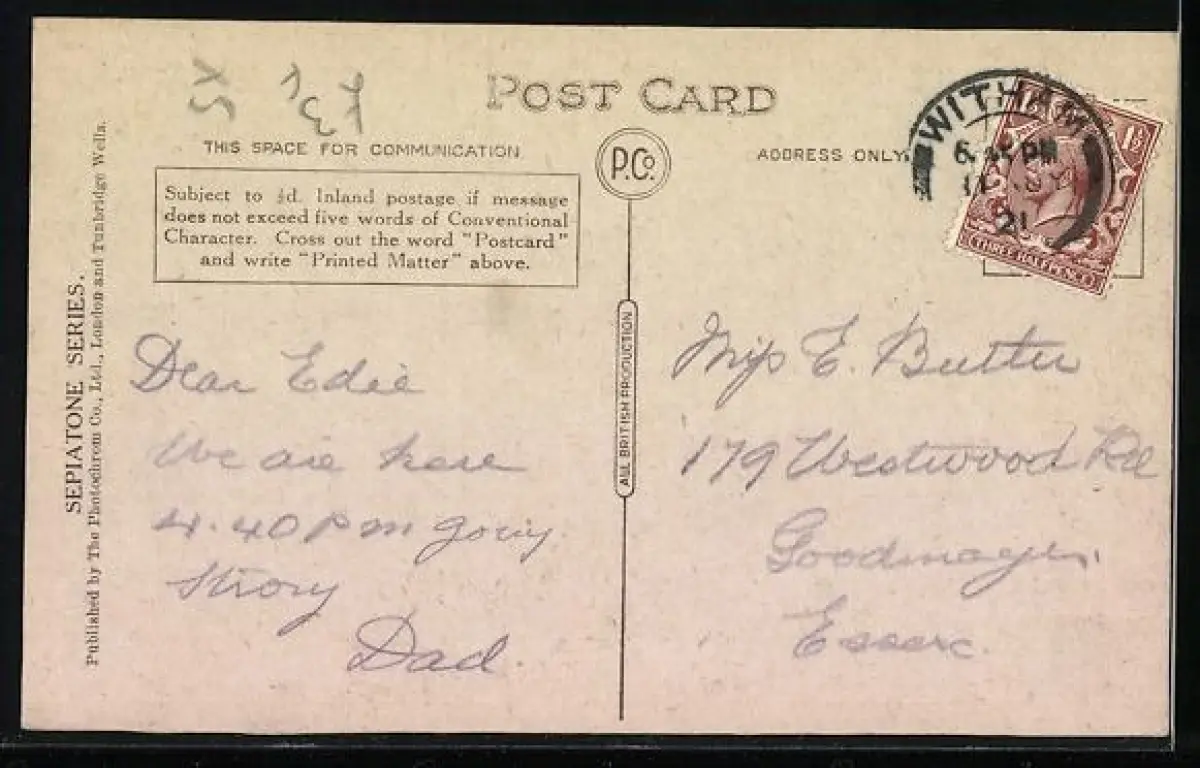 POST CARD
THIS SPACE FOR COMMUNICATION
P.Co.
ADDRESS ONLY.
Subject to ½d. Inland postage if message
does not exceed five words of Conventional
Character. Cross out the word "Postcard"
and write "Printed Matter" above.
WITHAM
PM
21
1½
THREE HALFPENCE
SEPIATONE SERIES.
Published by The Photochrom Co., Ltd., London and Tunbridge Wells.
ALL BRITISH PRODUCTION
Dear Edie
We are here
4.40 pm going
Strong
Dad.
Miss E. Butter
179 Westwood Rd
Goodmayes.
Essex.